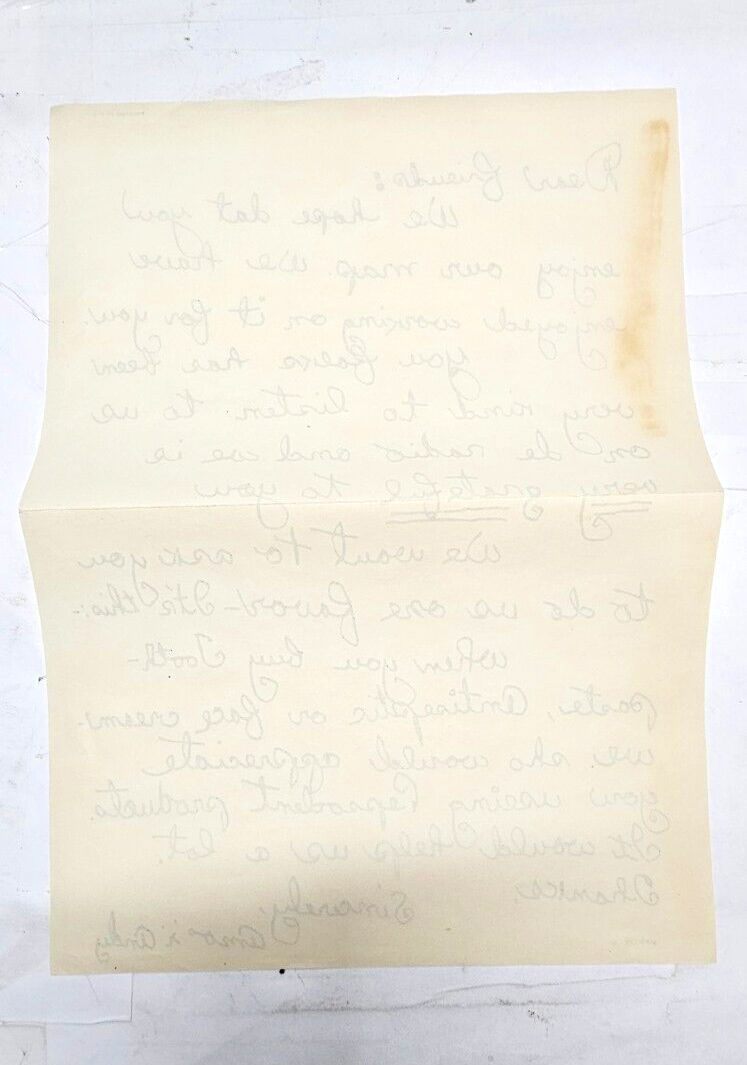 Dear Friends:
We hope dat you
enjoy our map. We have
enjoyed working on it for you.
You folks has been
very kind to listen to us
on de radio and we is
very grateful to you
We want to ask you
to do us one favor - It's this:-
When you buy Tooth-
paste, Antiseptic or face cream-
we sho would appreciate
you useing Pepsodent products.
It would help us a lot.
Thanks.
Sincerely,
Amos 'n' Andy